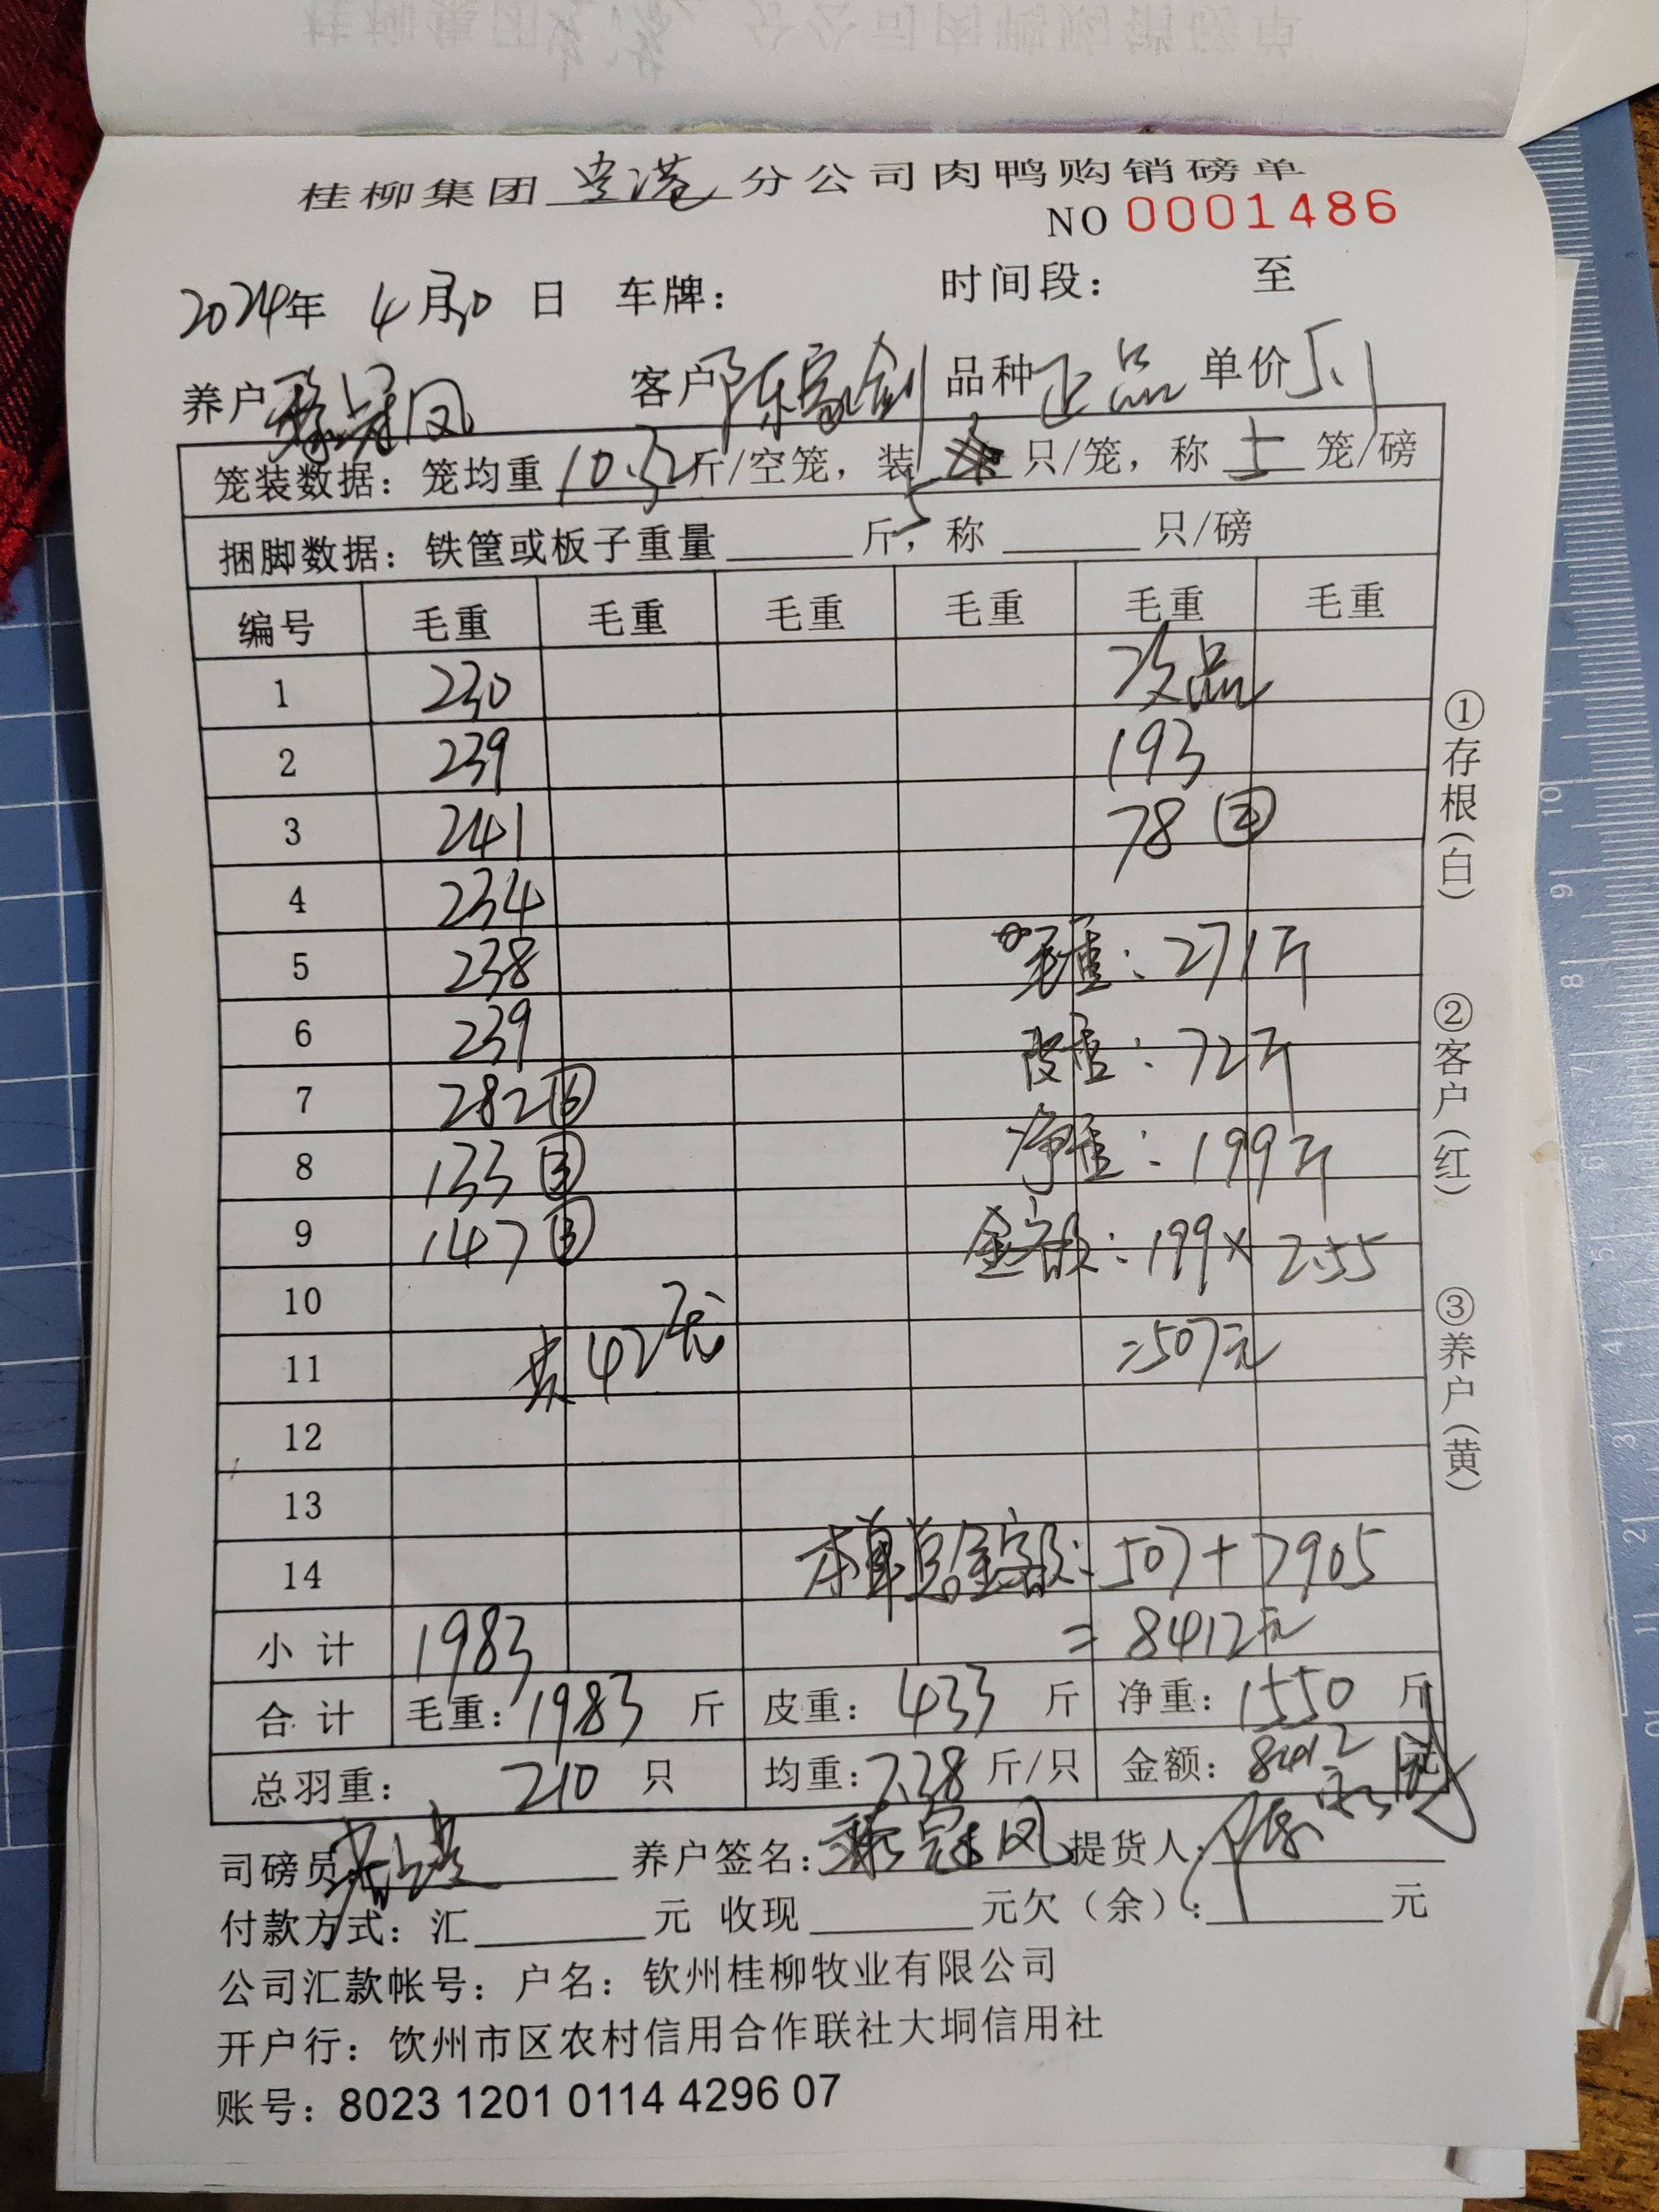 桂柳集团空港分公司肉鸭购销磅单
NO 0001486
2024年 4月30日 车牌： 时间段： 至
养户 冠凤 客户 陈家剑 品种 正品 单价 5.1
笼装数据：笼均重 10.3 斤/空笼，装 5 只/笼，称 五 笼/磅
捆脚数据：铁筐或板子重量 斤，称 只/磅
编号 毛重 毛重 毛重 毛重 毛重 毛重
1 230 次品
2 239 193
3 241 78 ②
4 234
5 238 毛重：271斤
6 239 皮重：72斤
7 282⑥ 净重：199斤
8 133③
9 147③ 金额：199×2.55
10
11 共42笼 =507元
12
13
14 本单总金额：507+7905
小计 1983 =8412元
合计 毛重：1983 斤 皮重：433 斤 净重：1550 斤
总羽重： 210 只 均重：7.38 斤/只 金额：8412 元
司磅员： 养户签名： 冠凤 提货人：陈
付款方式：汇 元 收现 元欠（余）： 元
公司汇款帐号：户名：钦州桂柳牧业有限公司
开户行：钦州市区农村信用合作联社大垌信用社
账号：8023 1201 0114 4296 07
①存根（白）
②客户（红）
③养户（黄）